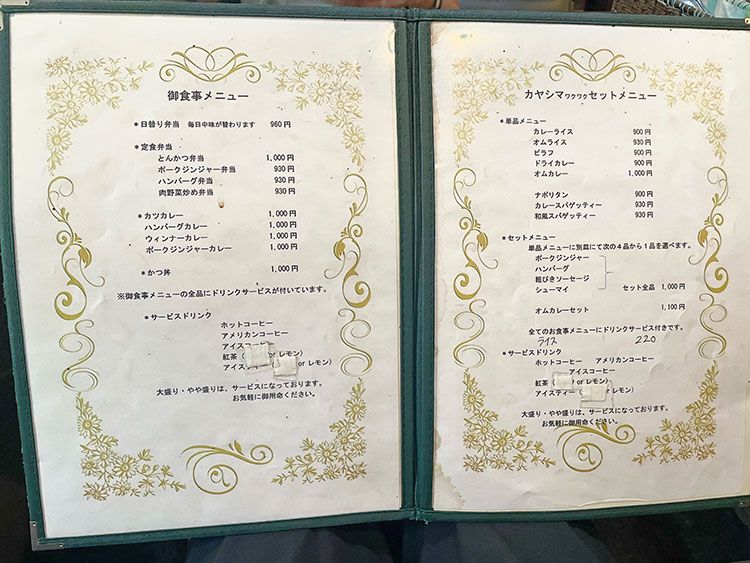 御食事メニュー
＊日替り弁当 毎日中味が替わります 960円
＊定食弁当
とんかつ弁当 1,000円
ポークジンジャー弁当 930円
ハンバーグ弁当 930円
肉野菜炒め弁当 930円
＊カツカレー 1,000円
ハンバーグカレー 1,000円
ウィンナーカレー 1,000円
ポークジンジャーカレー 1,000円
＊かつ丼 1,000円
※御食事メニューの全品にドリンクサービスが付いています。
＊サービスドリンク
ホットコーヒー
アメリカンコーヒー
アイスコーヒー
紅茶 ( or レモン)
アイス or レモン)
大盛り・やや盛りは、サービスになっております。
お気軽に御用命ください。
カヤシマワクワクセットメニュー
＊単品メニュー
カレーライス 900円
オムライス 930円
ピラフ 900円
ドライカレー 900円
オムカレー 1,000円
ナポリタン 900円
カレースパゲッティー 930円
和風スパゲッティー 930円
＊セットメニュー
単品メニューに別皿にて次の4品から1品を選べます。
ポークジンジャー
ハンバーグ
粗びきソーセージ
シューマイ セット全品 1,000円
オムカレーセット 1,100円
全てのお食事メニューにドリンクサービス付きです。
ライス 220
＊サービスドリンク
ホットコーヒー アメリカンコーヒー
アイスコーヒー
紅茶 ( or レモン)
アイスティー ( or レモン)
大盛り・やや盛りは、サービスになっております。
お気軽に御用命ください。